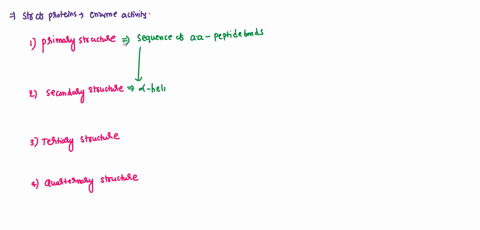 ⇒ Str of proteins → enzyme activity.
1) primary structure ⇒ sequence of aa - peptide bonds
2) Secondary structure ⇒ α-heli
3) Tertiary structure
4) Quarternary structure